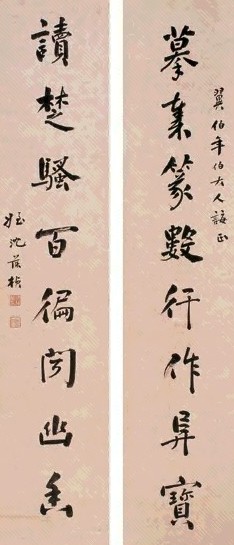 翼伯年伯大人諟正
摹秦篆數行作異寶
讀楚騷百徧闻幽香
姪沈葆楨